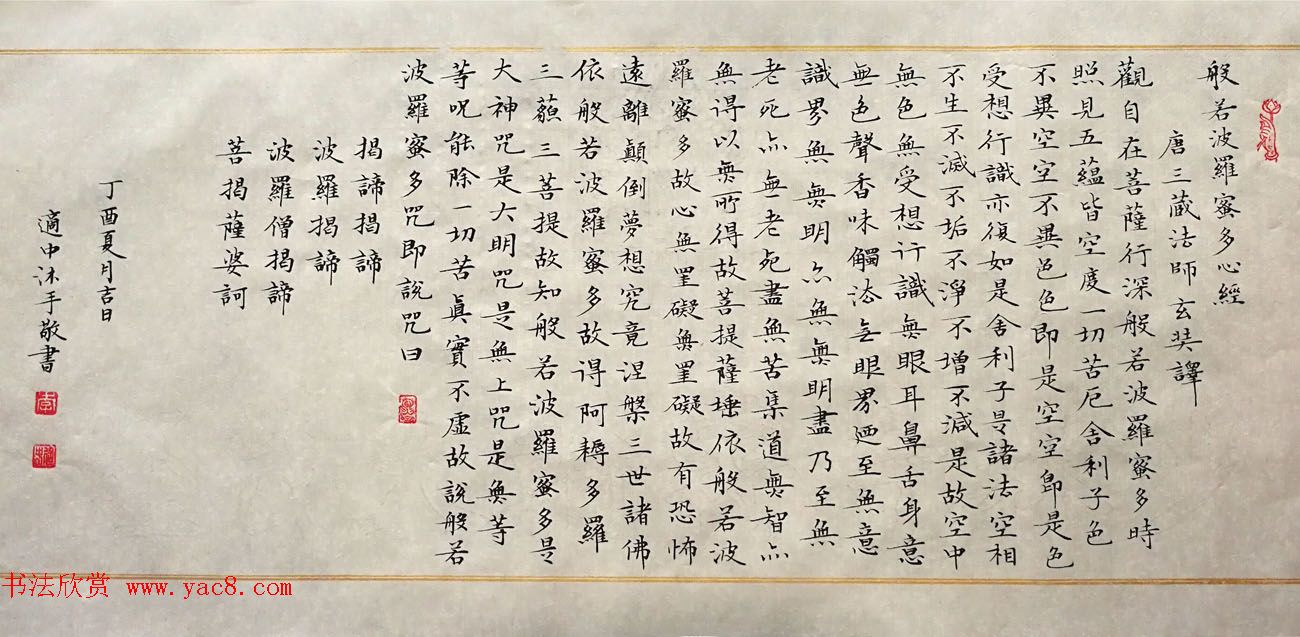 般若波羅蜜多心經
唐三藏法師玄奘譯
觀自在菩薩行深般若波羅蜜多時
照見五蘊皆空度一切苦厄舍利子色
不異空空不異色色即是空空即是色
受想行識亦復如是舍利子是諸法空相
不生不滅不垢不淨不增不減是故空中
無色無受想行識無眼耳鼻舌身意
無色聲香味觸法無眼界廼至無意
識界無無明亦無無明盡乃至無
老死亦無老死盡無苦集道無智亦
無得以無所得故菩提薩埵依般若波
羅蜜多故心無罣礙無罣礙故有恐怖
遠離顛倒夢想究竟涅槃三世諸佛
依般若波羅蜜多故得阿耨多羅
三藐三菩提故知般若波羅蜜多是
大神咒是大明咒是無上咒是無等
等呪能除一切苦真實不虛故說般若
波羅蜜多咒即說咒曰
揭諦揭諦
波羅揭諦
波羅僧揭諦
菩揭薩婆訶
丁酉夏月吉日
適中沐手敬書
书法欣赏 www.yac8.com